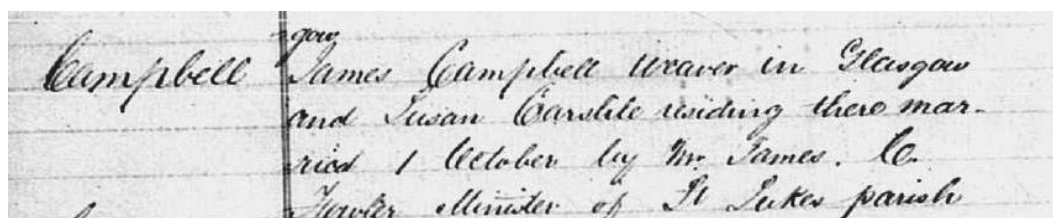 -gow
Campbell James Campbell weaver in Glasgow
and Susan Carslile residing there mar-
ried 1 October by Mr. James. C.
Fowler Minister of St Lukes parish